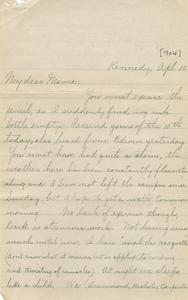 [1904]
Kennedy, Apl. 12
My dear Mama:
You must excuse the
pencil, as I suddenly find my ink
bottle empty. Received yours of the 10th
today, also heard from Edwin yesterday.
You must have had quite a storm, the
weather here has been constantly pleasant
along and I have not left the campus since
Sunday, but I hope to get a walk tomorrow
morning. No lack of exercise though,
tech is strenuous work. Not having done
much until now, I have made the
(don't know what it means but is applied to
and twisting of muscles). At night we sleep
like a child. We (Drummond, Carpenter